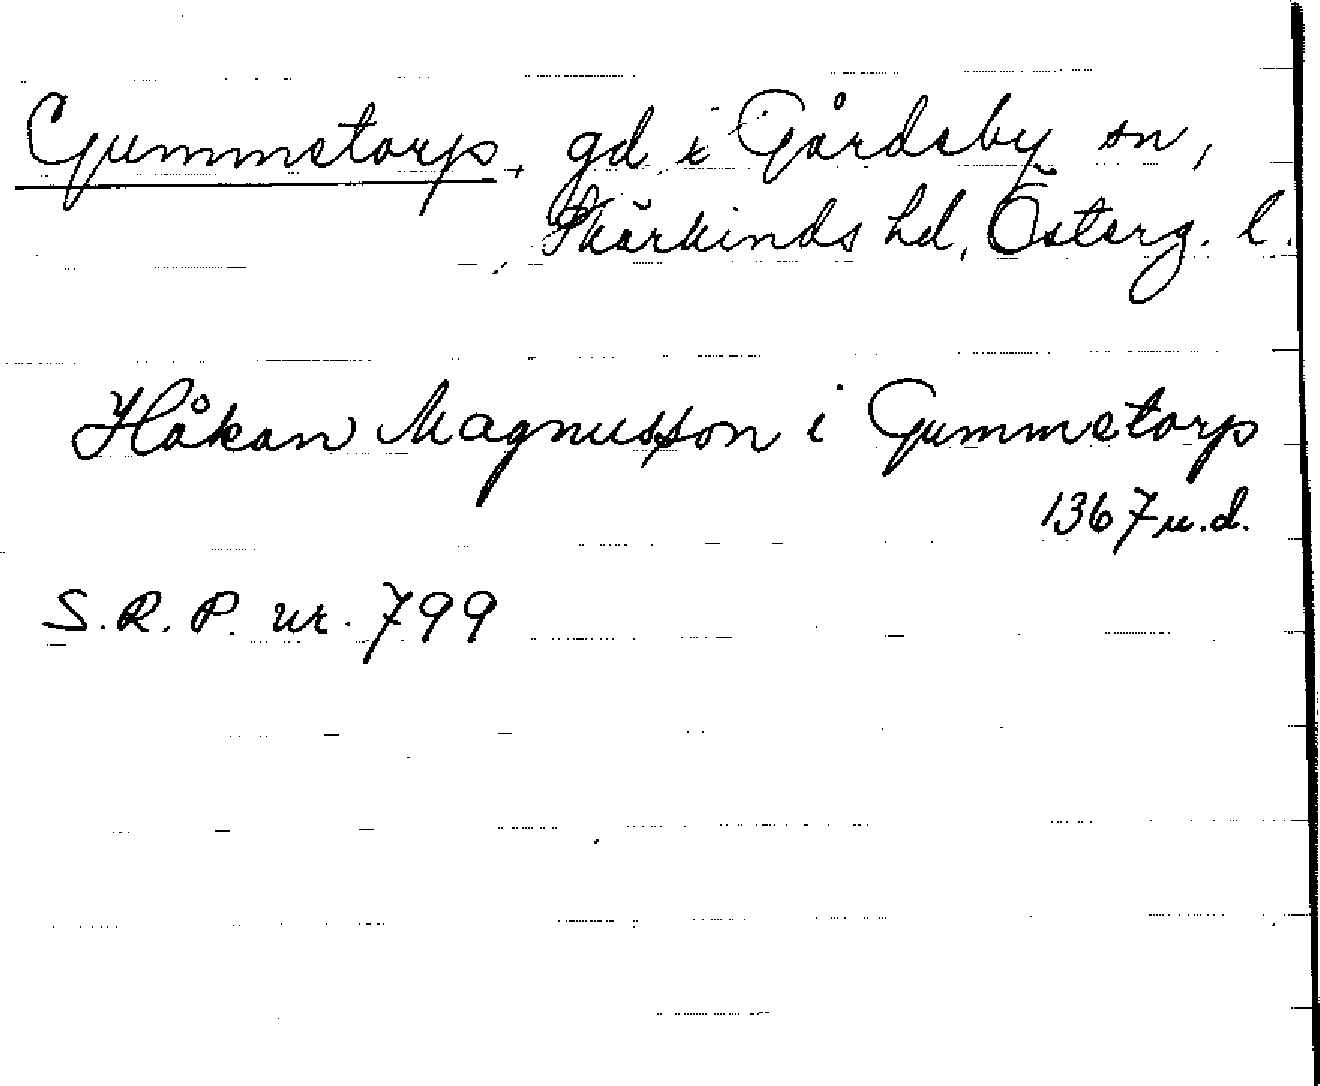 Gummetorp, gd i Gårdeby sn,
Skärkinds hd, Österg. l.
Håkan Magnusson i Gummetorp
1367 u.d.
S.R.P. nr. 799